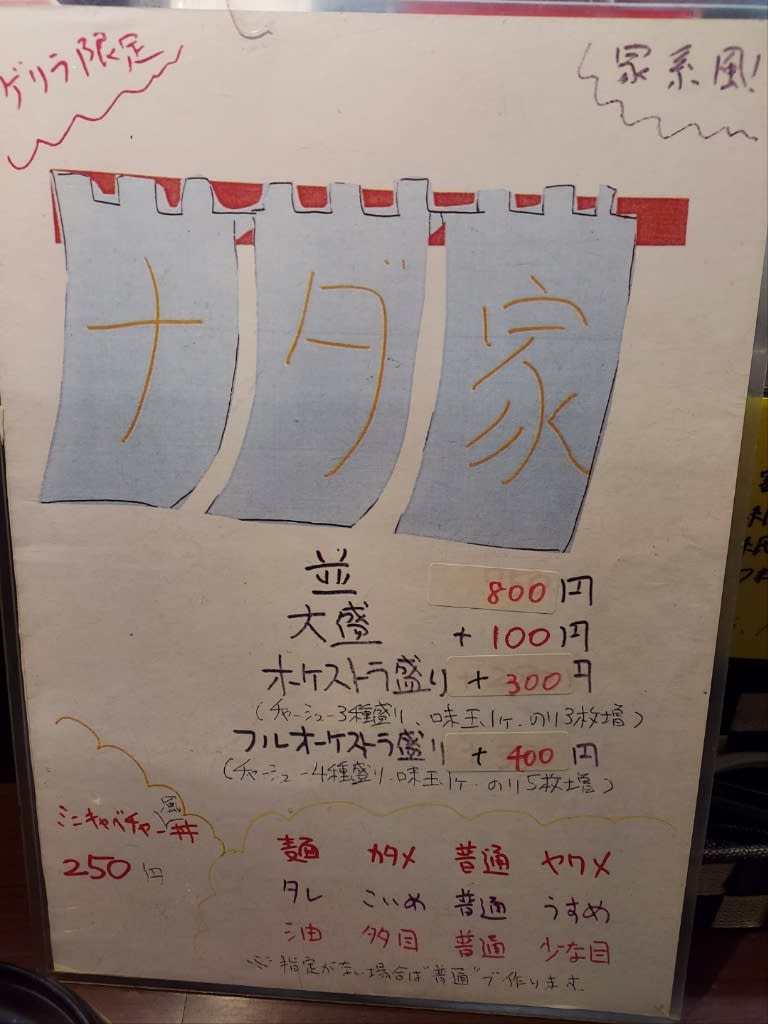 ゲリラ限定
家系風!
ナダ家
並 800円
大盛 +100円
オーケストラ盛り +300円
(チャーシュー3種盛り、味玉1ヶ、のり3枚増)
フルオーケストラ盛り +400円
(チャーシュー4種盛り、味玉1ヶ、のり5枚増)
ミニキャベチャー風丼
250円
麺 カタメ 普通 ヤワメ
タレ こいめ 普通 うすめ
油 多目 普通 少な目
※指定がない場合は"普通"で作ります。